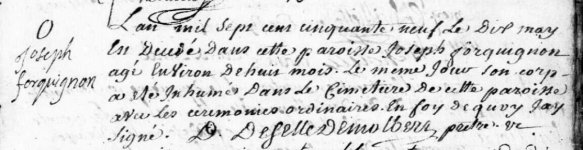 O
Joseph
forquignon
Lan mil sept cent cinquante neuf Le dix may
En Decede Dans cette paroisse Joseph forquignon
agé Environ De huit mois. Le meme Jour son corp
a ete Inhumé Dans Le Cimetiere de cette paroisse
avec Les ceremonies ordinaires. En foy de quoy Jay
signé. D.